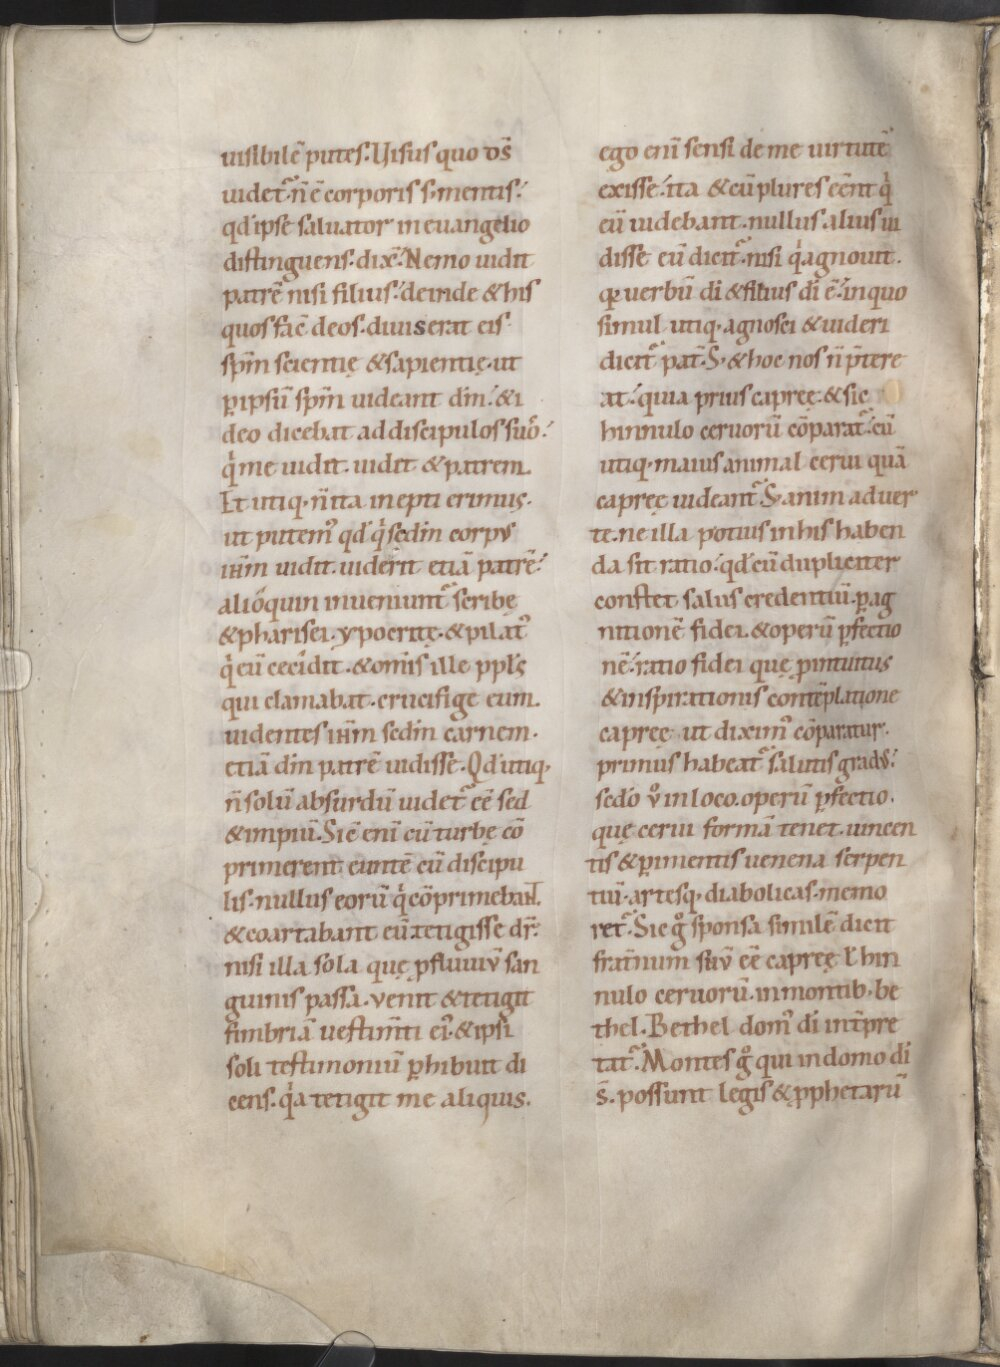 uisibilē putes. Uisus quo d̄s
uidet᷑ n̄ ē corporis s; mentis;
qd́ ipse saluator in euangelio
distinguens. dix̄. Nemo uidit
patrē nisi filius; deinde & his
quos fac̄ deos. diuiserat eis
sp̄m scientię & sapientię. ut
ꝑ ipsū sp̄m uideant dm̄; & i
deo dicebat ad discipulos suos;
q̍ me uidit. uidit & patrem.
Et utiq. n̄ ita inepti erimus.
ut putem᷒ qd́ q̍ sedm̄ corpus
ih̄m uidit. uiderit etiā patrē;
alioquin inueniunt᷑ scribę
& pharisei. ypocritę. & pilat᷒
q̍ eū cecidit. & om̄is ille ppl̄s
qui clamabat. crucifige eum.
uidentes ih̄m sedm̄ carnem.
etiā dm̄ patrē uidisse. Qd́ utiq.
n̄ solū absurdū uidet᷑ eē sed
& impiū. Sic̄ enī cū turbę cō
primerent euntē cū discipu
lis. nullus eorū q̍ cōprimebant.
& coartabant eū tetigisse dr̄;
nisi illa sola quę ꝓfluuiū san
guinis passa. venit & tetigit
fimbriā uestim̄ti ei᷒. & ipsi
soli testimoniū ꝑhibuit di
cens. q̍a tetigit me aliquis.
ego enī sensi de me uirtutē
exisse; ita & cū plures eēnt q̍
eū uidebant. nullus alius ui
disse eū dicit᷑. nisi q̍ agnouit.
qꝛ verbū di & filius di ē; in quo
simul utiq. agnosci & uideri
dicit᷑ pat̄. S; & hoc nos n̄ p̄tere
at; quia prius capreę. & sic
hinnulo ceruorū cōparat᷑; cū
utiq. maius animal cerui quā
capreę uideant᷑. S; animaduer
te. ne illa potius in his haben
da sit ratio; qd́ cū dupliciter
constet salus credentiū. ꝑ ag
nitionē fidei. & operū ꝑfectio
nē; ratio fidei quę ꝑ intuitus
& inspirationis contēplatione
capreę ut dixim᷒ cōparatur.
primus habeat᷑ salutis grad᷒;
sed͛o v̊ in loco. operū ꝑfectio.
quę cerui formā tenet. uincen
tis & ꝑimentis uenena serpen
tiū. artesq. diabolicas. memo
ret᷑. Sic g̊ sponsa similē dicit
frat̄num suū eē capreę ł hin
nulo ceruorū. in montib. be
thel. Bethel dom᷒ di int̄pre
tat᷑. Montes g̊ qui in domo di
s̄. possunt legis & ꝓphetarū